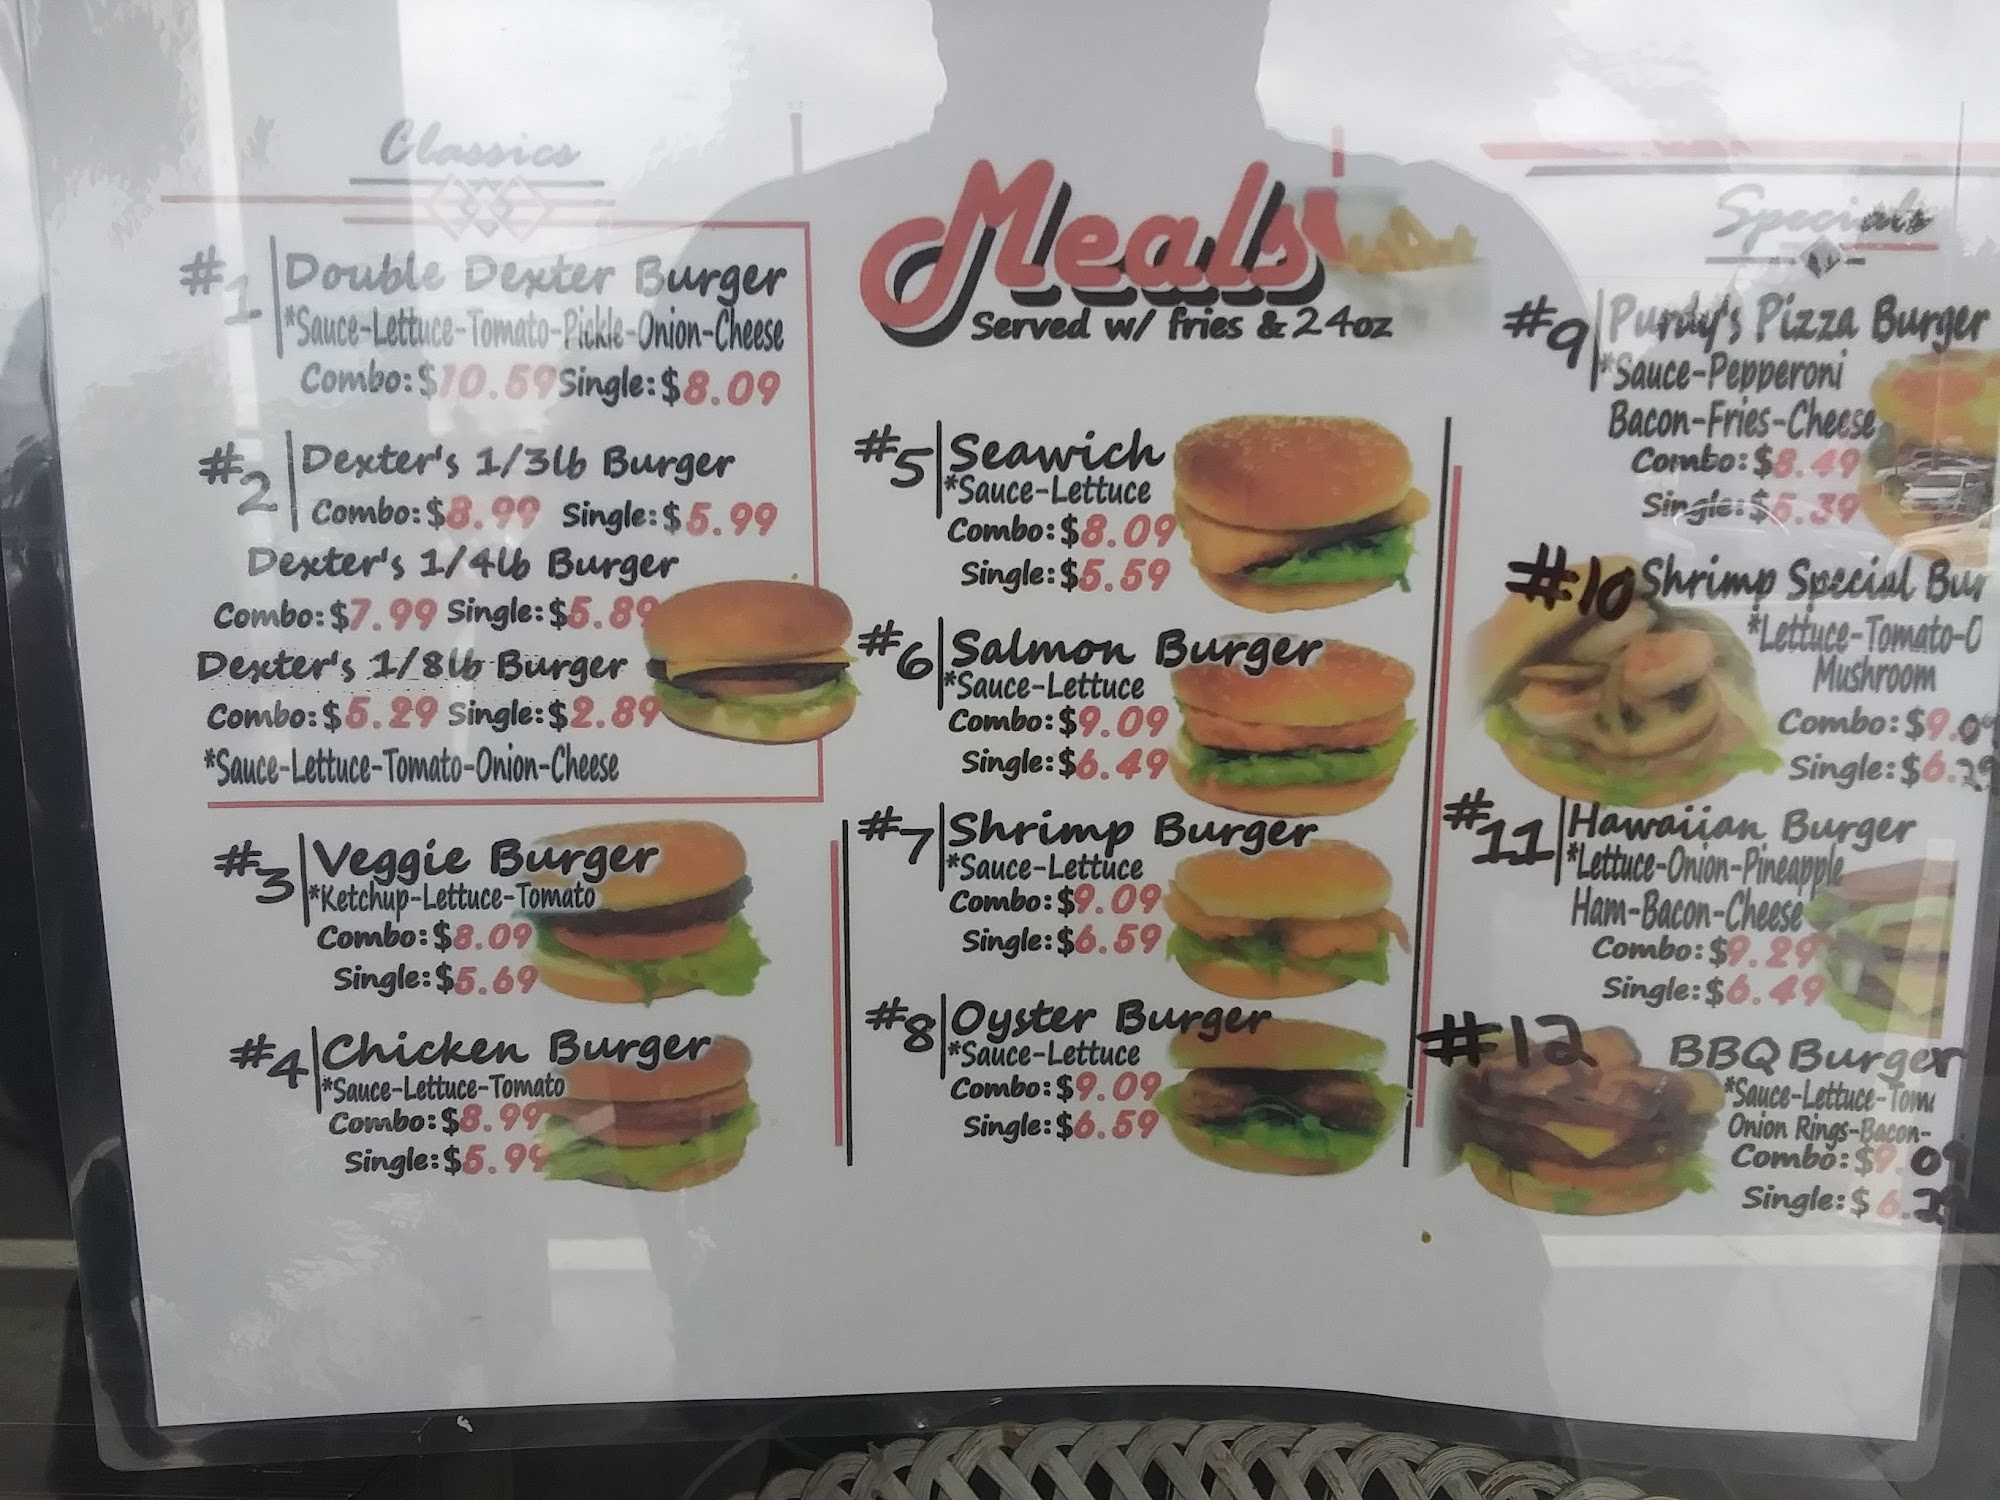 Classics
#1 Double Dexter Burger
*Sauce-Lettuce-Tomato-Pickle-Onion-Cheese
Combo:$10.59 Single:$8.09
#2 Dexter's 1/3lb Burger
Combo:$8.99 Single:$5.99
Dexter's 1/4lb Burger
Combo:$7.99 Single:$5.89
Dexter's 1/8lb Burger
Combo:$5.29 Single:$2.89
*Sauce-Lettuce-Tomato-Onion-Cheese
#3 Veggie Burger
*Ketchup-Lettuce-Tomato
Combo:$8.09
Single:$5.69
#4 Chicken Burger
*Sauce-Lettuce-Tomato
Combo:$8.99
Single:$5.99
Meals
Served w/ fries & 24oz
#5 Seawich
*Sauce-Lettuce
Combo:$8.09
Single:$5.59
#6 Salmon Burger
*Sauce-Lettuce
Combo:$9.09
Single:$6.49
#7 Shrimp Burger
*Sauce-Lettuce
Combo:$9.09
Single:$6.59
#8 Oyster Burger
*Sauce-Lettuce
Combo:$9.09
Single:$6.59
Specials
#9 Purdy's Pizza Burger
*Sauce-Pepperoni
Bacon-Fries-Cheese
Combo:$8.49
Single:$5.39
#10 Shrimp Special Bur
*Lettuce-Tomato-O
Mushroom
Combo:$9.09
Single:$6.29
#11 Hawaiian Burger
*Lettuce-Onion-Pineapple
Ham-Bacon-Cheese
Combo:$9.29
Single:$6.49
#12 BBQ Burger
*Sauce-Lettuce-Tom
Onion Rings-Bacon-
Combo:$9.09
Single:$6.29